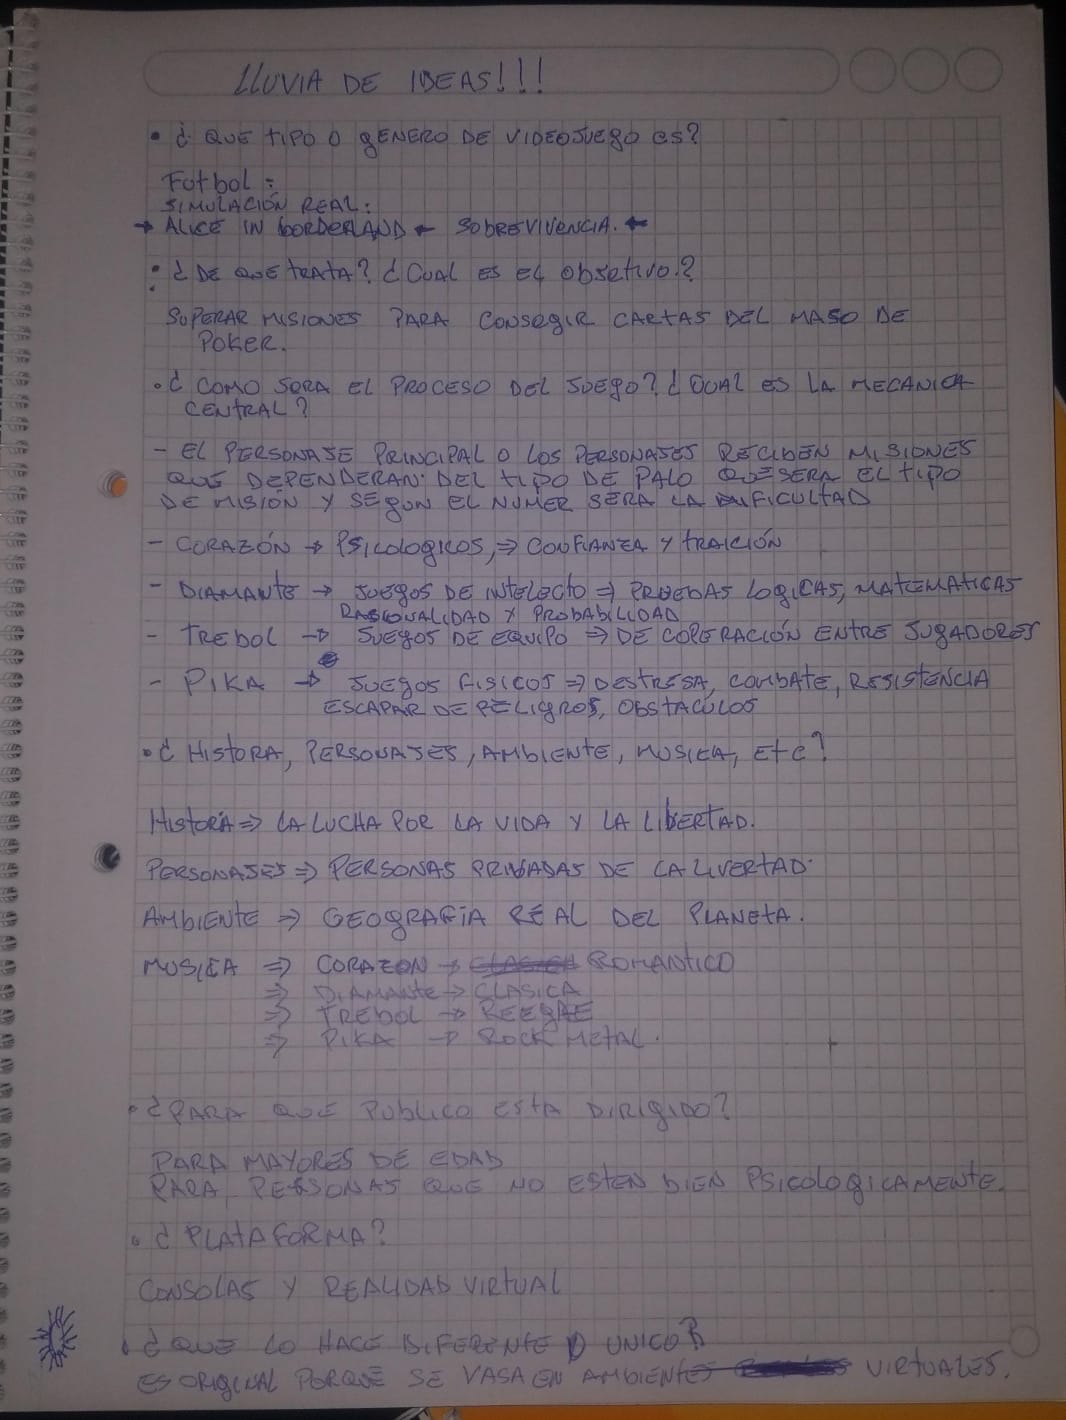 LLUVIA DE IDEAS!!!
• ¿ QUE TIPO O GENERO DE VIDEOJUEGO ES?
Futbol :
SIMULACIÓN REAL :
→ ALICE IN BORDERLAND ← SOBREVIVENCIA. ←
• ¿ DE QUE TRATA? ¿ CUAL ES EL OBJETIVO.?
SUPERAR MISIONES PARA CONSEGIR CARTAS DEL MASO DE
POKER.
• ¿ COMO SERA EL PROCESO DEL JUEGO? ¿ CUAL ES LA MECANICA
CENTRAL?
- EL PERSONAJE PRINCIPAL O LOS PERSONAJES RECIBEN MISIONES
QUE DEPENDERAN DEL TIPO DE PALO QUE SERA EL TIPO
DE MISIÓN Y SEGUN EL NUMER SERA LA DIFICULTAD
- CORAZÓN → PSICOLOGICOS, ⇒ CONFIANZA Y TRAICIÓN
- DIAMANTE → JUEGOS DE INTELECTO ⇒ PRUEBAS LOGICAS, MATEMATICAS
RASIONALIDAD Y PROBABILIDAD
- TREBOL → JUEGOS DE EQUIPO ⇒ DE COPERACIÓN ENTRE JUGADORES
- PIKA → JUEGOS FISICOS ⇒ DESTRESA, COMBATE, RESISTENCIA
ESCAPAR DE PELIGROS, OBSTACULOS
• ¿ HISTORA, PERSONAJES, AMBIENTE, MUSICA, ETC?
HISTORIA ⇒ LA LUCHA POR LA VIDA Y LA LIBERTAD.
PERSONAJES ⇒ PERSONAS PRIVADAS DE LA LIVERTAD.
AMBIENTE ⇒ GEOGRAFIA REAL DEL PLANETA.
MUSICA ⇒ CORAZON → CLASICA ROMANTICO
⇒ DIAMANTE → CLASICA
⇒ TREBOL → REEGAE
⇒ PIKA → ROCK METAL.
• ¿ PARA QUE PUBLICO ESTA DIRIGIDO?
PARA MAYORES DE EDAD
PARA PERSONAS QUE NO ESTEN BIEN PSICOLOGICAMENTE.
• ¿ PLATAFORMA?
CONSOLAS Y REALIDAD VIRTUAL
• ¿ QUE LO HACE DIFERENTE O UNICO?
ES ORIGINAL PORQUE SE VASA EN AMBIENTES VIRTUALES.